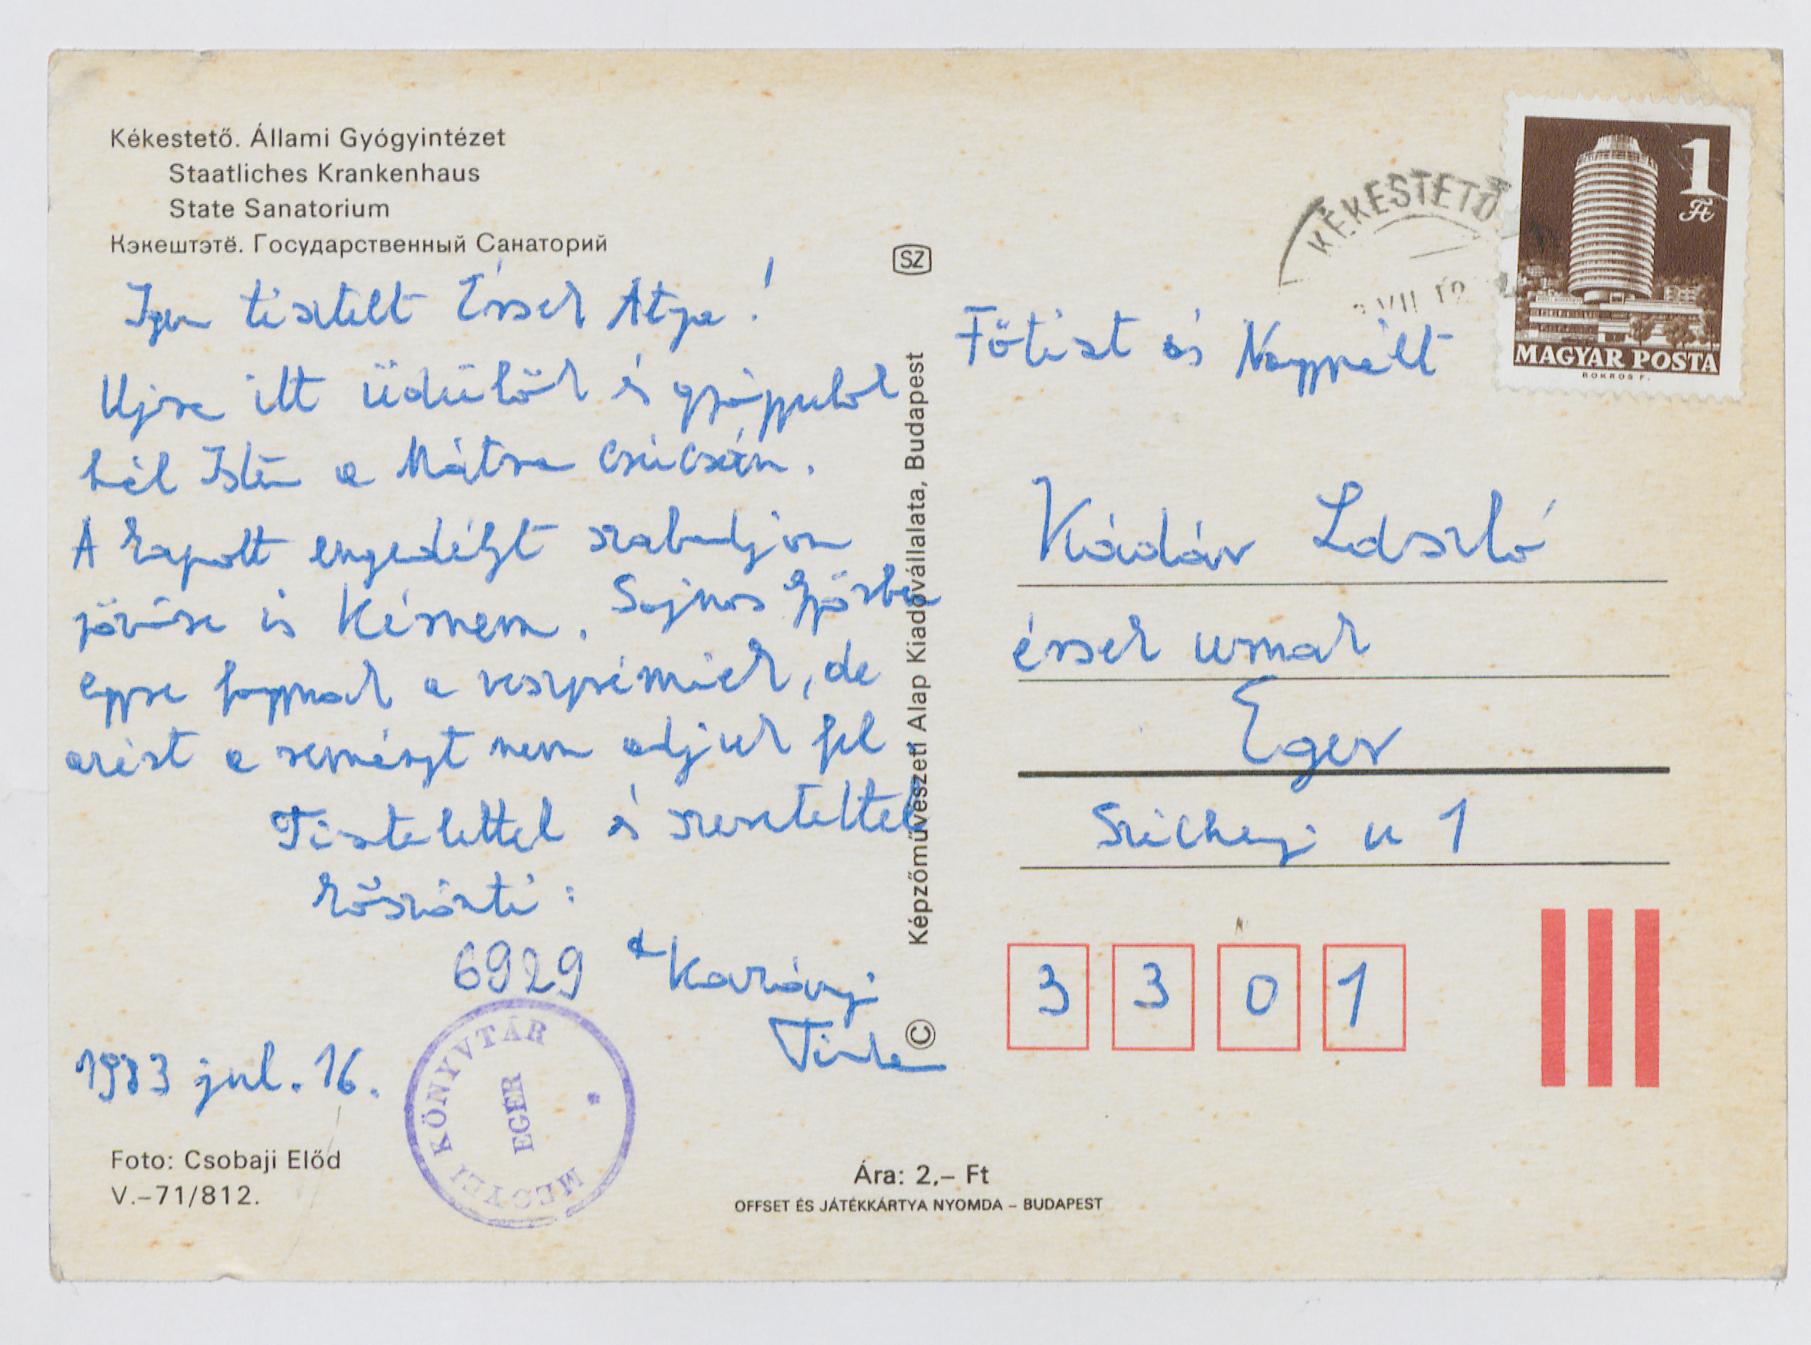 Kékestető. Állami Gyógyintézet
Staatliches Krankenhaus
State Sanatorium
Кэкештэтё. Государственный Санаторий
Igen tisztelt Érsek Atya!
Ujra itt üdülök és gyógyulok
hál Isten a Mátra csúcsán.
A kapott engedélyt szabadjon
jövőre is kérnem. Sajnos Győrben
egyre fogynak a veszprémiek, de
azért a reményt nem adjuk fel
Tisztelettel és szeretettel
köszönti:
6929
1983 jul. 16.
MEGYEI KÖNYVTÁR
EGER
Foto: Csobaji Előd
V.–71/812.
SZ
Képzőművészeti Alap Kiadóvállalata, Budapest
©
Ára: 2,– Ft
OFFSET ÉS JÁTÉKKÁRTYA NYOMDA – BUDAPEST
KÉKESTETŐ
1 Ft
MAGYAR POSTA
Főtiszt és Nagym
Kádár László
érsek urnak
Eger
Széchenyi u 1
3 3 0 1